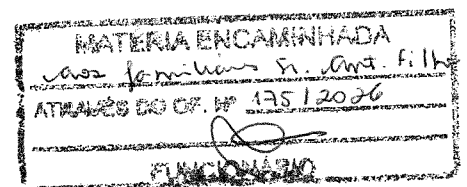 MATERIA ENCAMINHADA
aos familiares Sr. Ant. Filho
ATRAVÉS DO OF. Nº 175 / 2026
FUNCIONÁRIO